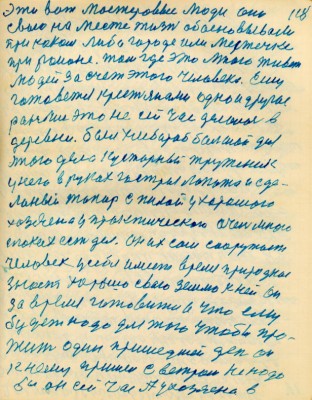 118
Эти вот мастеровые люди они
свою на месте жизнь обосновывали
при каком либо городе или местечке
при районе. там где это много живет
людей за счет этого человека. Ему
готовется крестьянами одно и другое
раньше это не сей час делалось в
деревни. Был не барабольной для
этого дела кустарный труженик
у него в руках гострая лопата и сде-
ланый топор с пилой у хорошого
хозяена у практического очен много
таких ест дел. Он их сам сооружает
человек у себя имеет время природная
знает хорошо свою землю к ней он
за время готовится и что ему
будет надо для того чтобы про-
жит один пришедший ден он
к нему пришел с ветром не надо
бы он сей час А у хозяена в